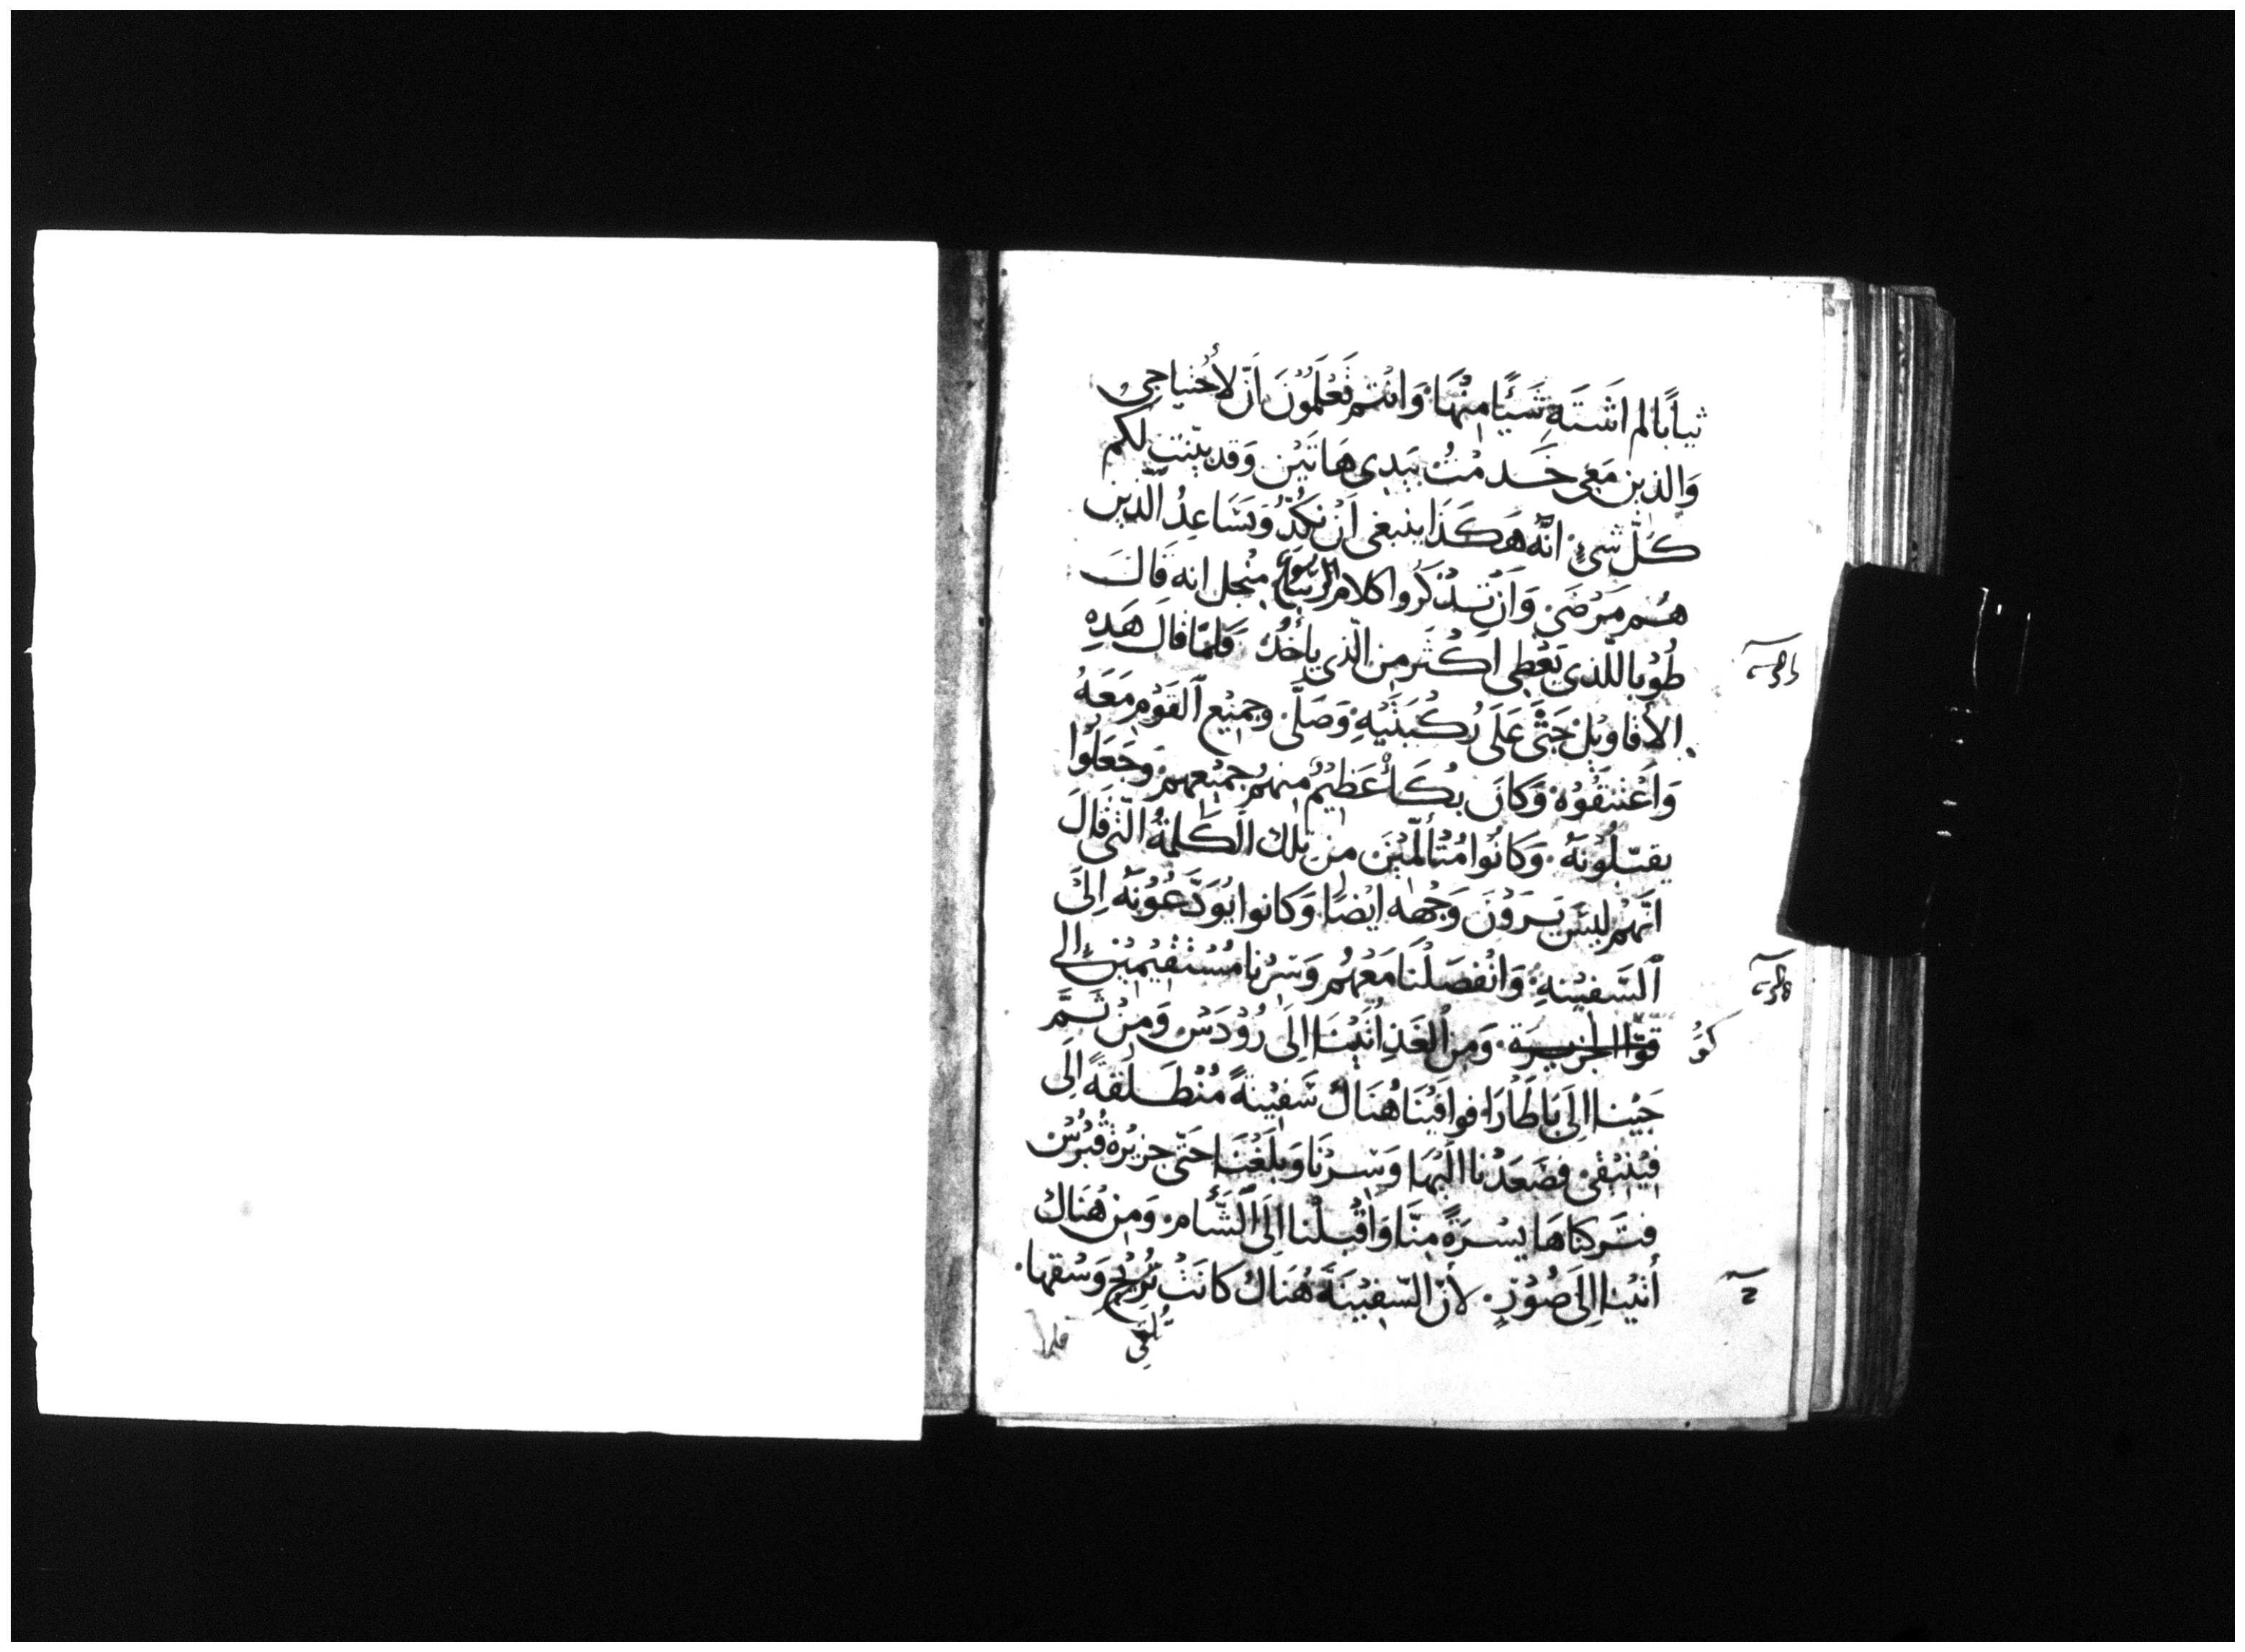 ثياباً لم اَشتَهِ شَيئًا مِنْهَا. وَانتم تَعْلَمُوْنَ اَنّ لأُحتياجى
وَالذين مَعِى خَدمْتُ بَيدى هَاتَيْن وَقد بيّنت لكم
كلّ شىٍ. انّه هَكَذَا ينبغى اَنْ نكدّ وَنسَاعِدُ الّذين
هُم مَرْضَى. وَاَنْ تذْكُروا كلام الربّ يسوع منْجل انه قَالَ
طُوْبا للّذى يَعْطى اَكْثَر مِن الّذي ياْخُذ فَلمّا قالَ هَذِهِ
الأقاويْل جَثَى عَلَى رُكبَتَيْهِ وَصَلّى. وجميْع اَلقَوْم مَعَهُ
وَاَعْتنَقُوْهُ. وَكانَ بُكَأ عَظِيْمٌ منهُم جميْعهم وَجَعَلُوْا
يقبّلُوْنَهُ. وَكانُوا مُتأَلّميْنَ من تلك الكَلمَةُ الّتى قالَ
انّهُمْ ليسَ يَرَوْنَ وَجْهه ايْضًا. وَكانوا يُوَدَّعُوْنَهُ اِلىَ
اَلسَّفيْنهِ. وَانْفصَلْنَا مَعهُم وَسِرْنا مُسْتقيْميْن إلى
قوّا الجزيرة. وَمِن اُلغَدِ اَتَيْنَا اِلَى رُوْدَس وَمِنْ ثَمَّ
جَيْنا اِلىَ بَاطَارَا. فوافَيْنَا هُنَاكَ سَفيْنةً مُنْطَلقةً اِلَى
فيْنيْقى. فصَعَدْنا الَيْهَا وَسِرْنَا وَبلَغْنَا حَتّى جزيْرة قبْرُس
فتَركنَاهَا يسْرَةً مِنَّا وَاَقْبَلْنا اِلَى اَلشَّأم. وَمِن هُنَاكَ
أتَيْنا اِلىَ صُوْرٍ. لأنّ السّفيْنَةَ هُنَاكَ كانَتْ تُرِيْحُ وَسْقها.
تُلقى